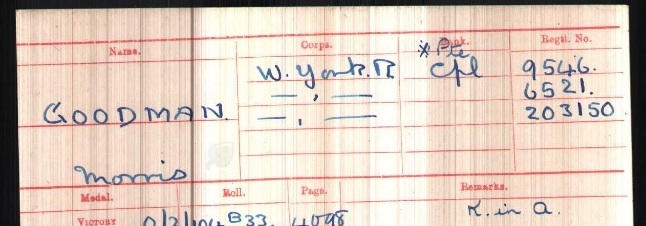 Name. Corps. Rank. Regtl. No.
* Pte
W. York. R Cpl 9546.
— , — 6521.
GOODMAN. — , — 203150
Morris
Medal. Roll. Page. Remarks.
VICTORY B33. 4098 K. in A.